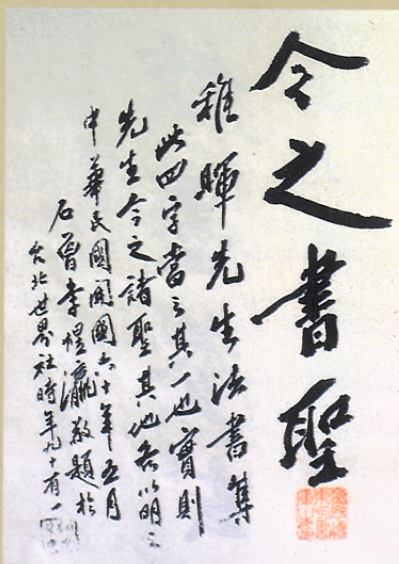 今之書聖
稚暉先生法書集
此四字當之其一也實則
先生今之諸聖其他各以明之
中華民國開國六十年五月
石曾李煜瀛敬題於
台北世界社時年九十有一